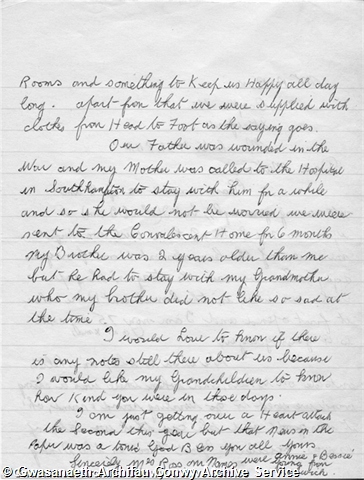 Rooms and something to Keep us Happy all day
long. apart from that we were supplied with
clothes from Head to Foot as the saying goes.
Our Father was wounded in the
War and my Mother was called to the Hospital
in Southhampton to stay with him for a while
and so she would not be worried we were
sent to the Convalescent Home for 6 months
my Brother was 2 years older than me
but he had to stay with my Grandmother
who my brother did not like so sad at
the time.
I would Love to know if there
is any notes still there about us because
I would like my Grandchildren to know
How Kind you were in those days.
I am just getting over a Heart attack
the Second this year but that News in the
Paper was a tonic God Bless you all Yours
Sincerely Mrs Ross our Names were Annie & Bessie
Young from
© Gwasanaeth Archifau Conwy/Archive Service